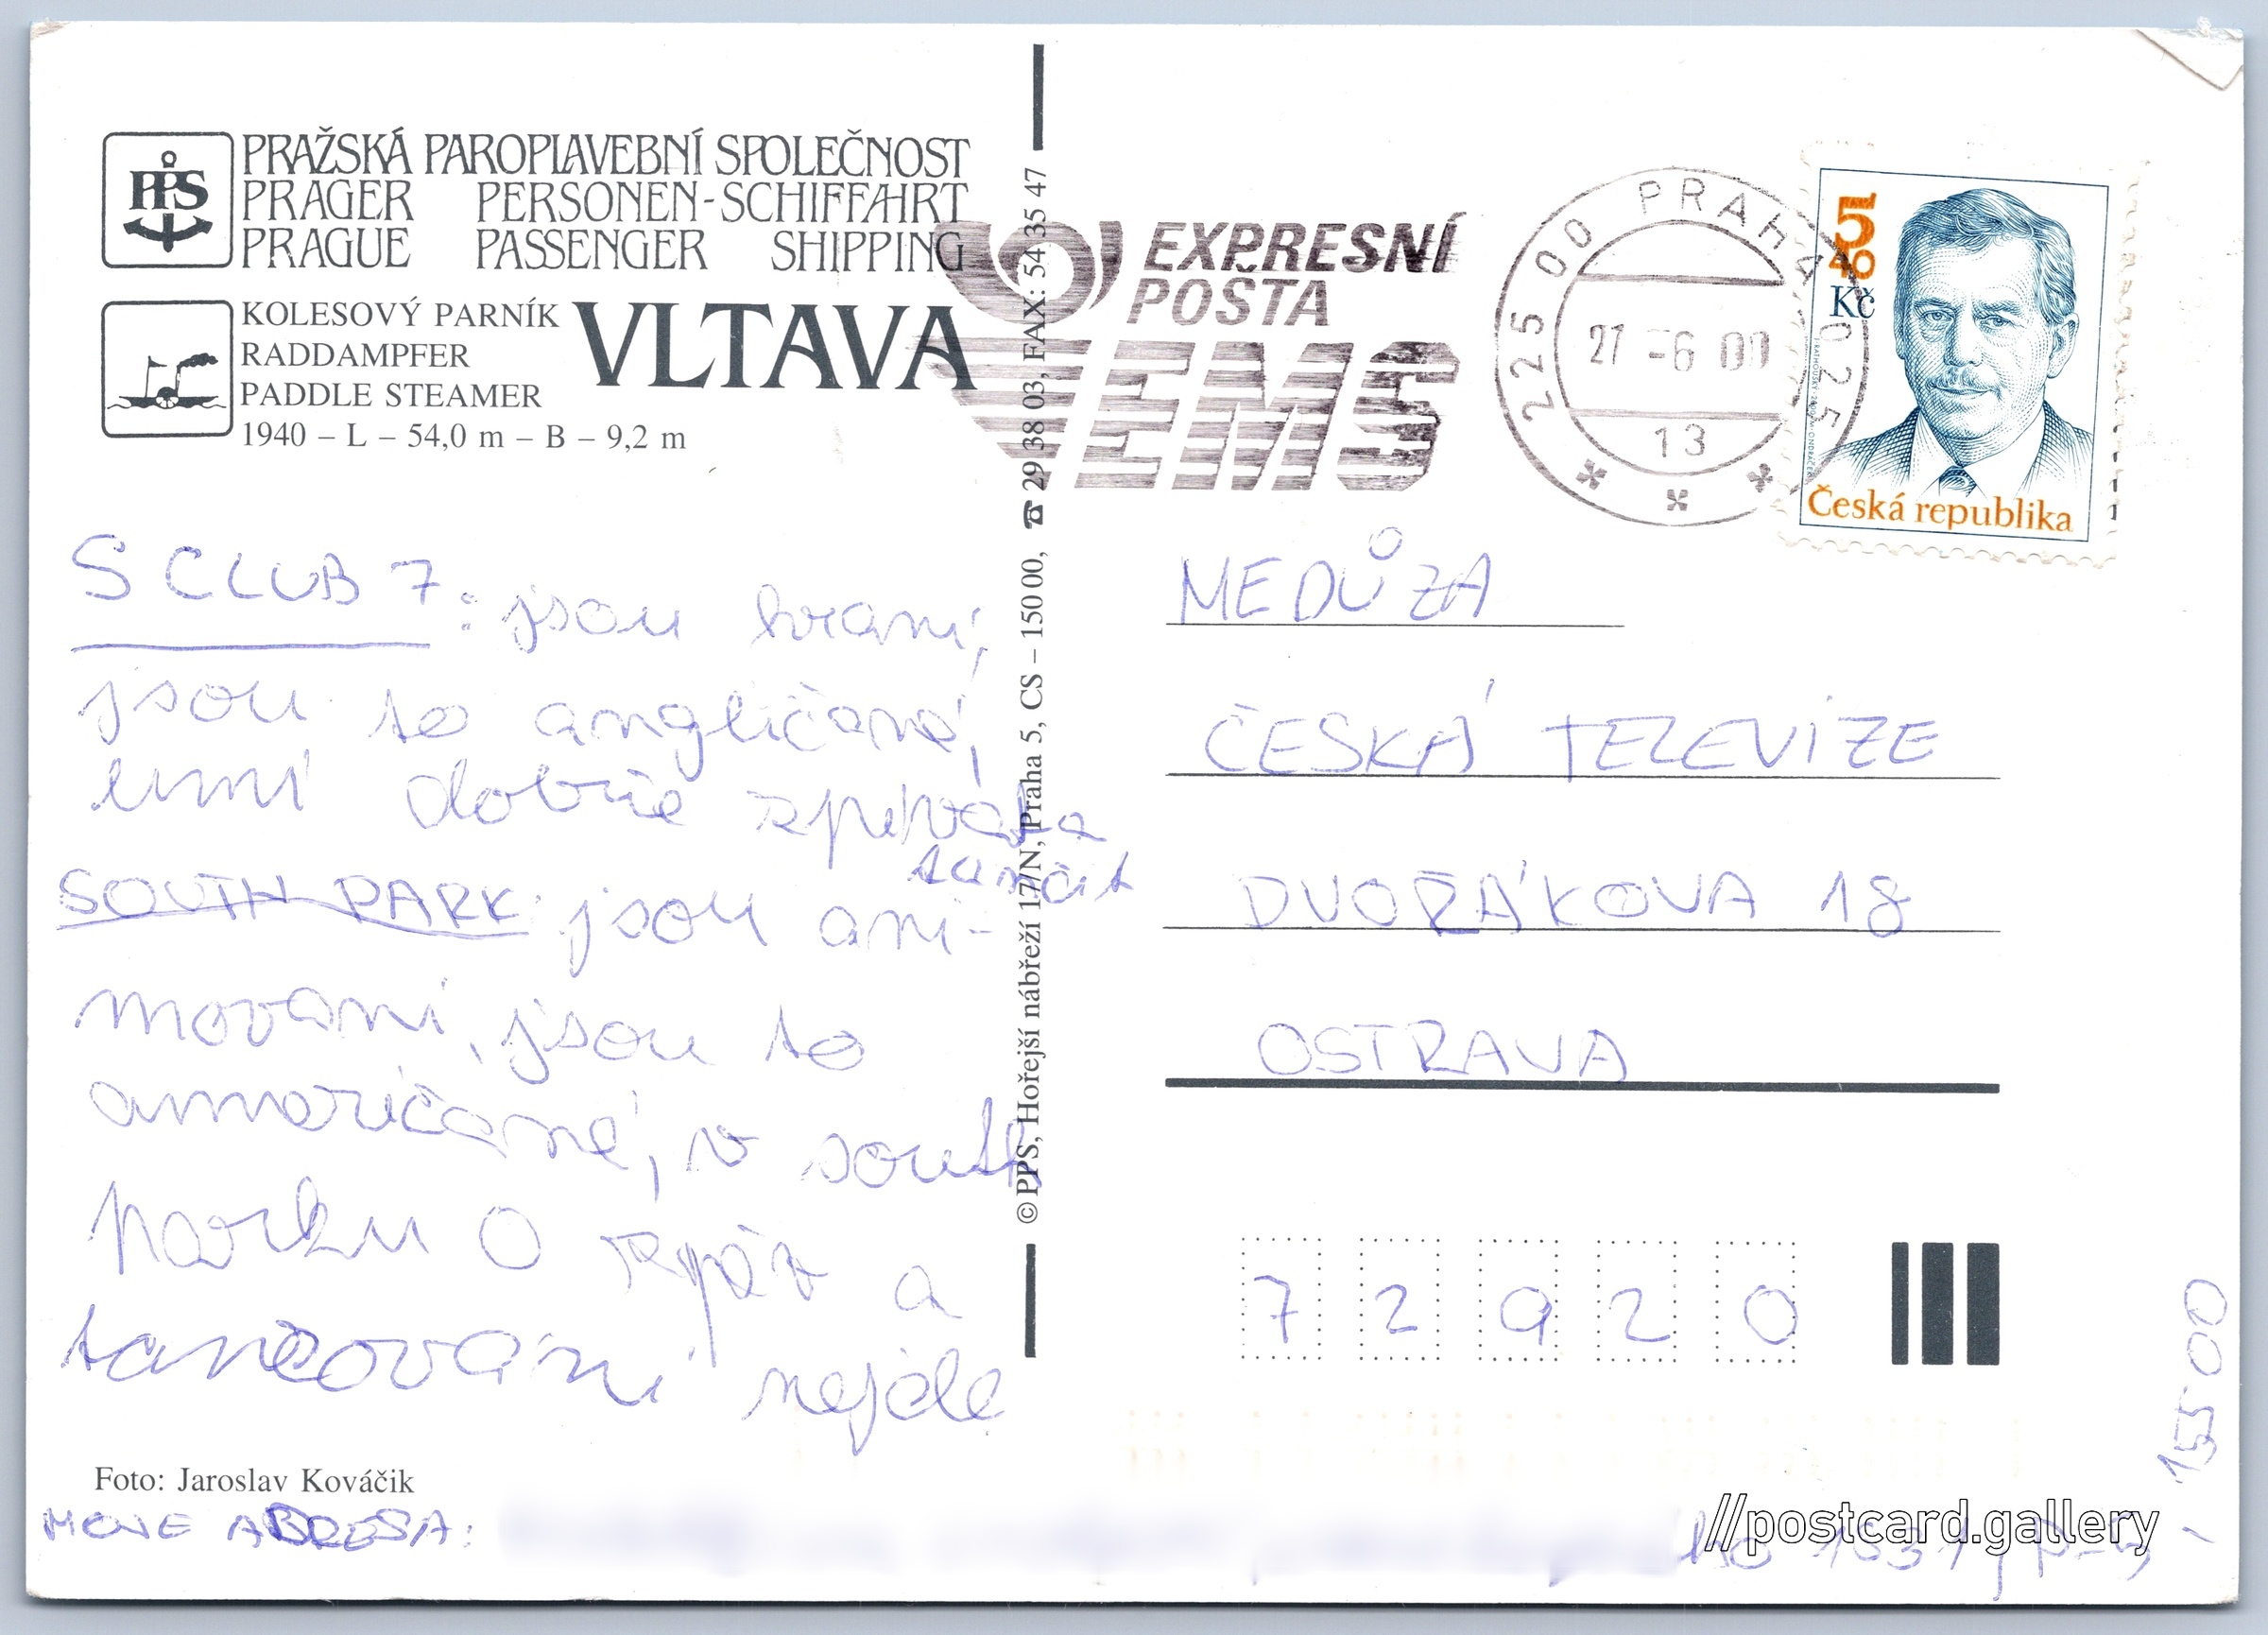 PPS
PRAŽSKÁ PAROPLAVEBNÍ SPOLEČNOST
PRAGER PERSONEN-SCHIFFAHRT
PRAGUE PASSENGER SHIPPING
KOLESOVÝ PARNÍK
RADDAMPFER
PADDLE STEAMER
VLTAVA
1940 – L – 54,0 m – B – 9,2 m
S CLUB 7: jsou hraní,
jsou to angličané,
umí dobře zpívat a
tančit
SOUTH PARK: jsou ani-
movaní, jsou to
američané, v south
parku o zpěv a
tancování nejde
Foto: Jaroslav Kováčik
MOJE ADRESA:
1531, P-5, 15500
© PPS, Hořejší nábřeží 17/N, Praha 5, CS – 150 00, ☎ 29 38 03, FAX: 54 35 47
EXPRESNÍ
POŠTA
EMS
225 00 PRAHA 025
27 -6 00
13
5
40
Kč
Česká republika
MEDŮZA
ČESKÁ TELEVIZE
DVOŘÁKOVA 18
OSTRAVA
7 2 9 2 0
//postcard.gallery